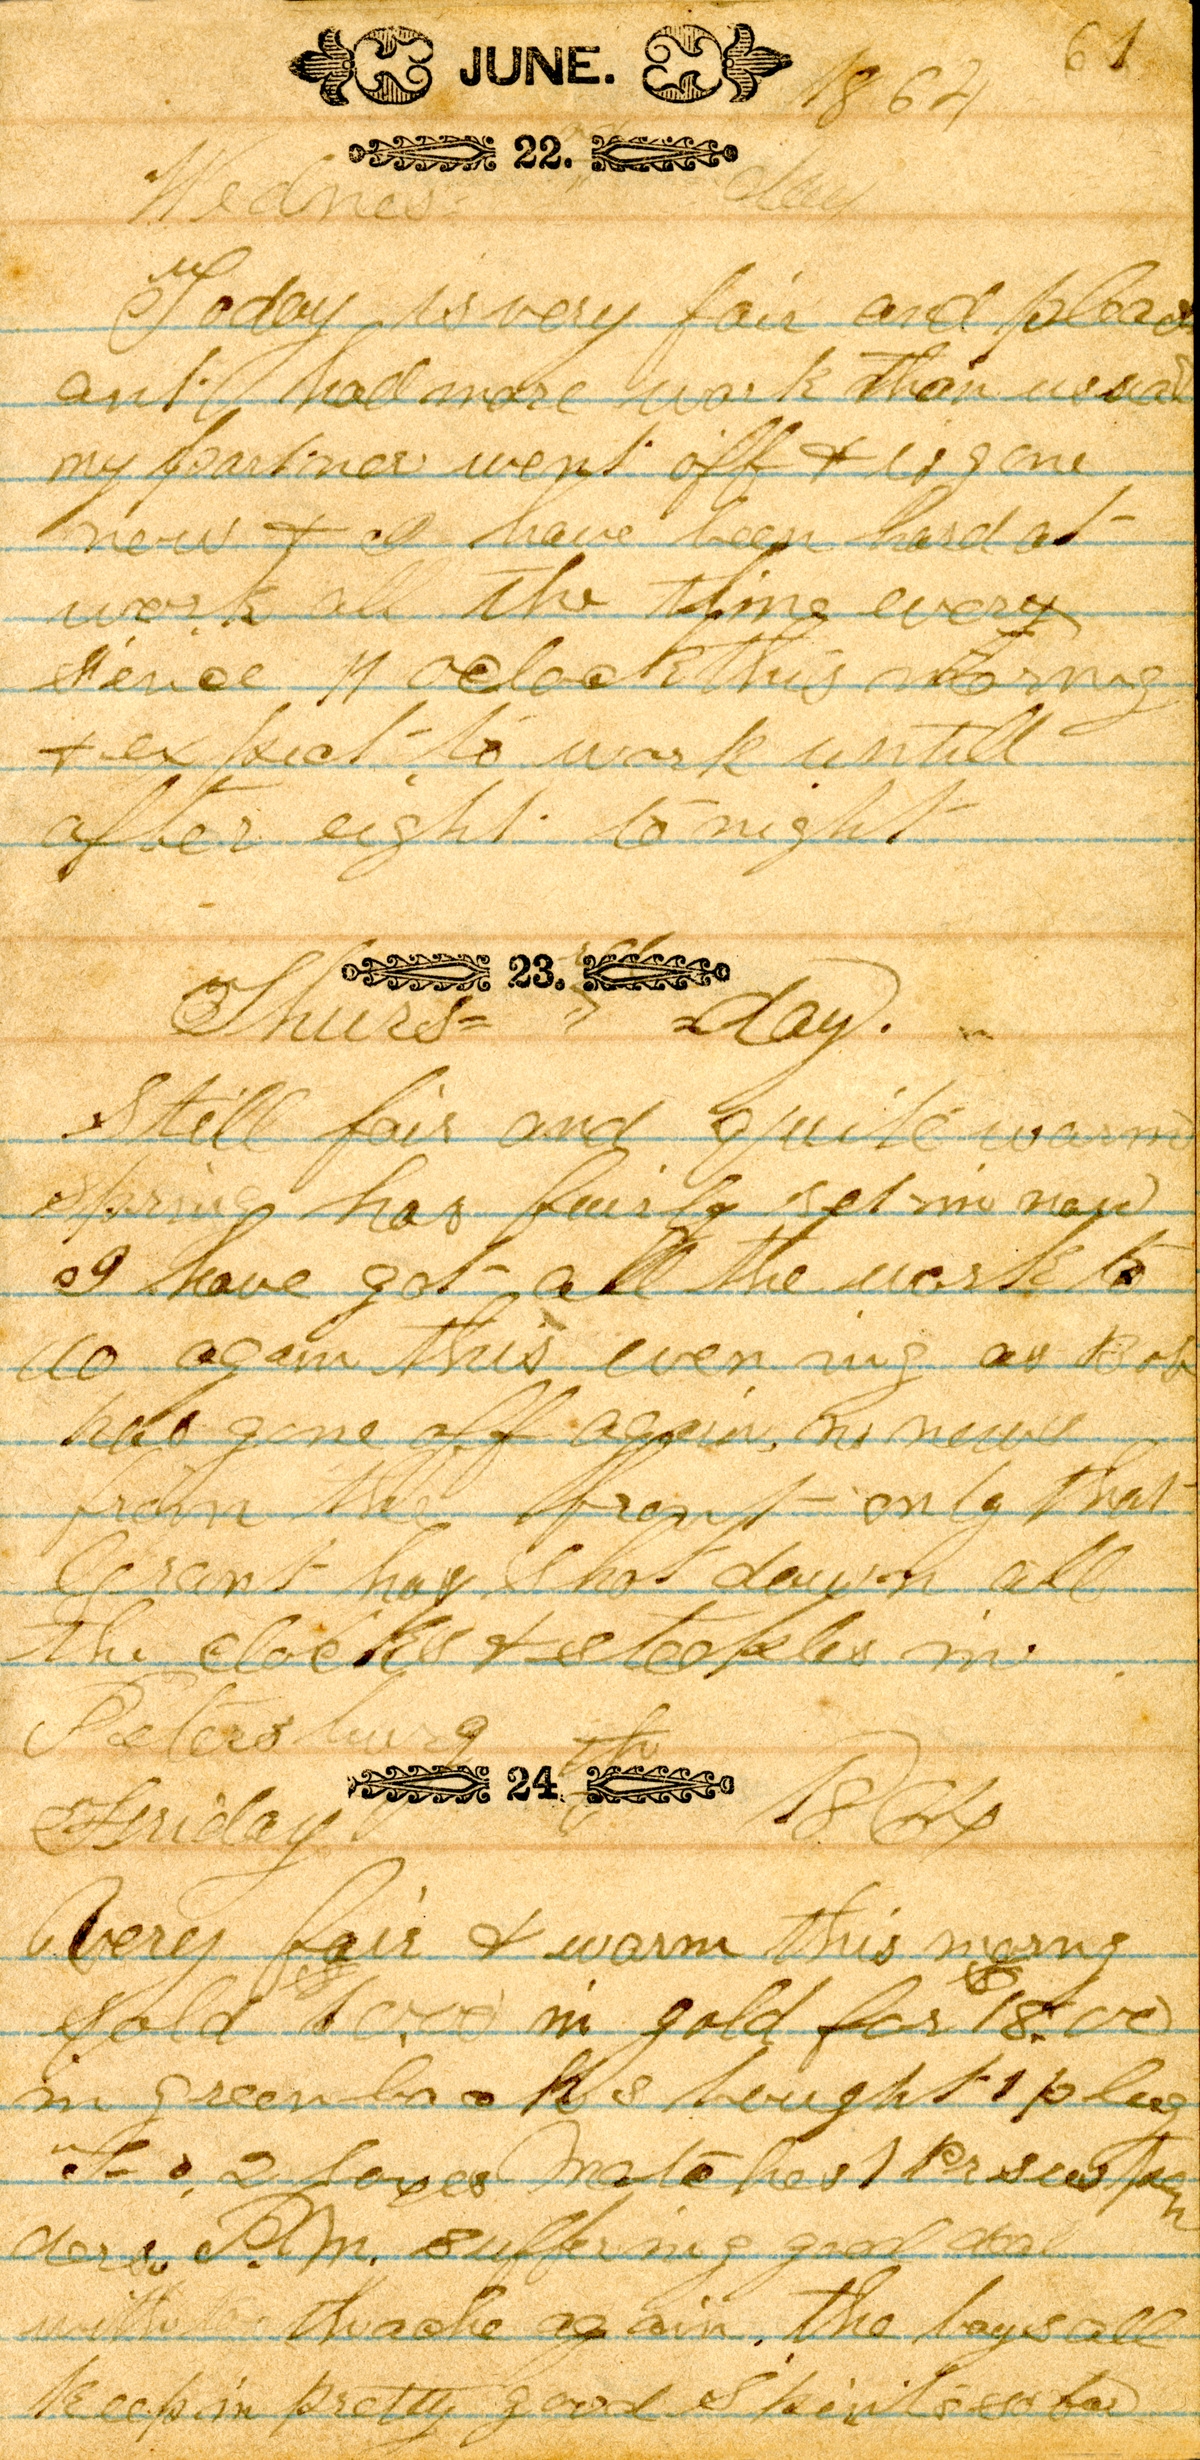 JUNE. 1864 61
22.
Wednes= day
Today is very fair and pleas
ant had more work than usual
my partner went off & is gone
now & I have been hard at
work all the time every
sience 11 oclock this morning
& expect to work untill
after eight to night
23. rd
Thurs= =day.
Still fair and quite warm
Spring has fairly set in now
I have got all the work to
do again this evening as Bob
has gone off again, no news
from the front only that
Grant has Shot down all
the clocks & steeples in
Petersburg
24 th
Friday 1864
Very fair & warm this morng
Sold $10.00 in gold for $18.00
in greenbacks bought 1 plug
To. 2 boxes Matches 1 Pr suspen
ders. P.M. suffering good deal
with toothache again. the boys all
keep in pretty good Spirits so far